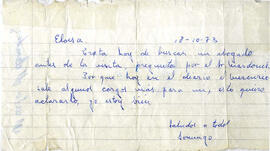 Eloisa 18-10-73
Trata hoy de buscar un abogado
antes de la visita pregunta por el tt mardones.
Por que hoy en el diario el mercurio
sale algunos cargos más para mi, esto quiero
aclararlo, yo estoy bien
Saludos a todos
Domingo